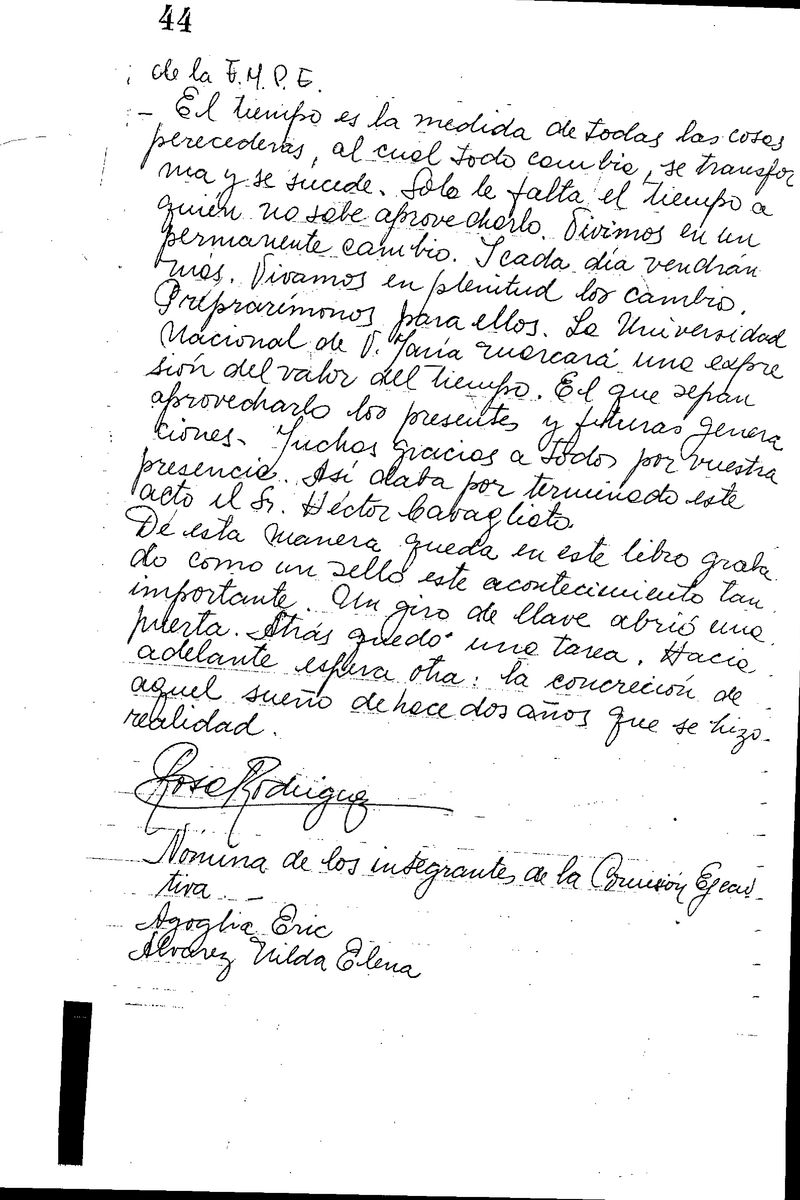 44
de la F.M.P.E.
- El tiempo es la medida de todas las cosas
perecederas, al cual todo cambia, se transfor
ma y se sucede. Sólo le falta el tiempo a
quién no sabe aprovecharlo. Vivimos en un
permanente cambio. Y cada día vendrán
más. Vivamos en plenitud los cambio.
Preprarímonos para ellos. La Universidad
Nacional de V. María marcará una expre
sión del valor del tiempo. El que sepan
aprovecharlo los presentes y futuras genera
ciones. Muchas gracias a todos por vuestra
presencia. Así daba por terminado este
acto el Sr. Héctor Cavagliato
De esta manera queda en este libro graba
do como un sello este acontecimiento tan
importante. Un giro de llave abrió una
puerta. Atrás quedó una tarea. Hacia
adelante espera otra: la concreción de
aquel sueño de hace dos años que se hizo
realidad.
Rosa Rodriguez
Nómina de los integrantes de la Comisión Ejecu
tiva. -
Agoglia Eric
Alvarez Nilda Elena